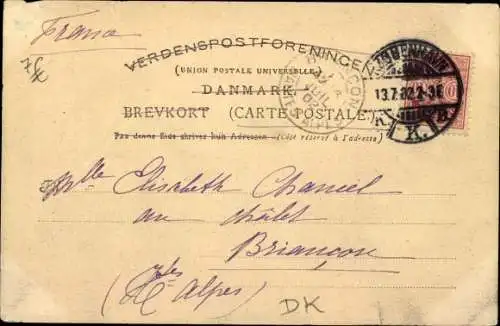 France
7f
VERDENSPOSTFORENINGEN
(UNION POSTALE UNIVERSELLE)
DANMARK.
BREVKORT (CARTE POSTALE.)
Paa denne Side skrives kun Adressen (Côté réservé à l'adresse)
BRIANÇON
JUIL
02
HAUTES-ALPES
KJØBENHAVN
13.7.02.2-3E
K.
10
Mlle Elisabeth Chancel
au châlet
Briançon
(Htes Alpes)
DK